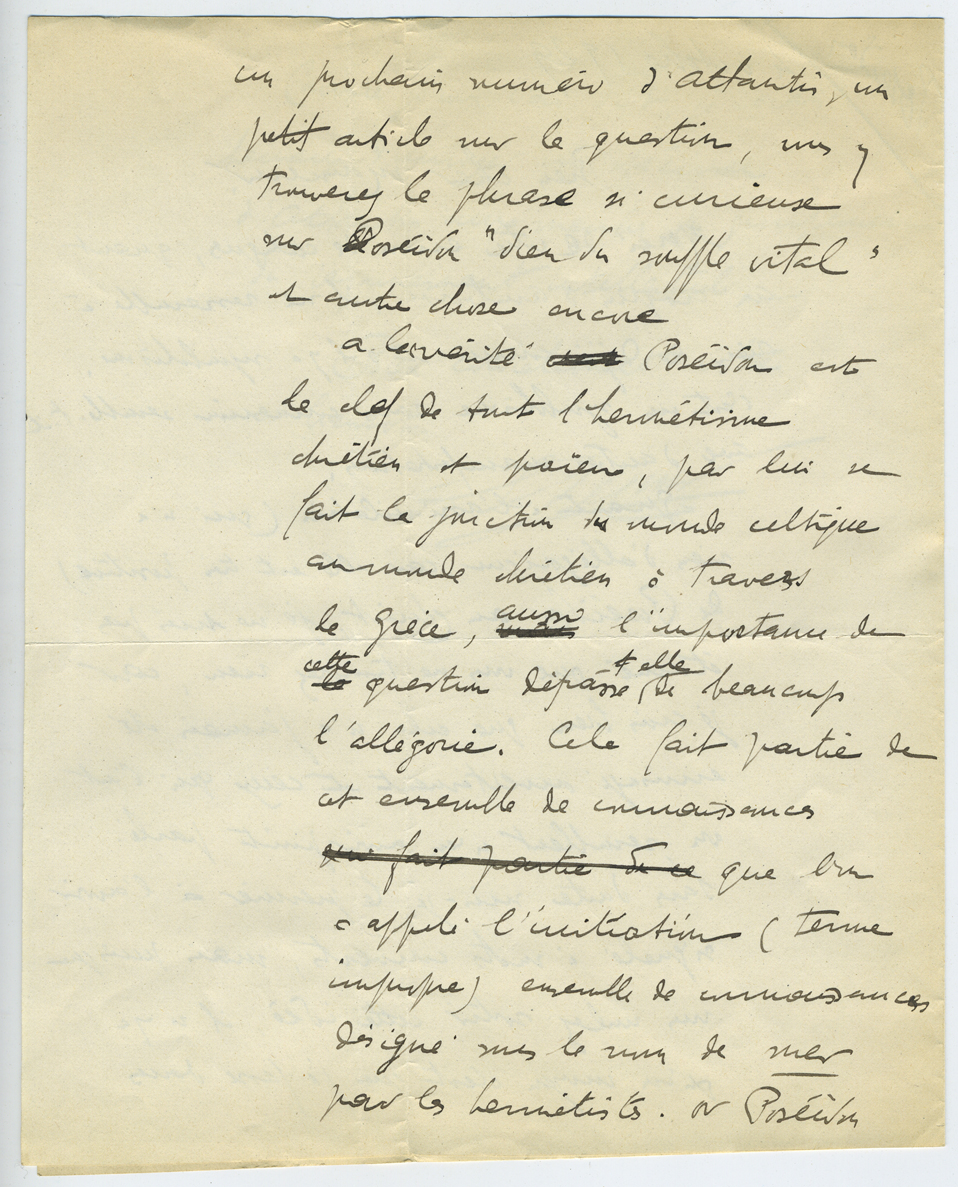 un prochain numéro d'atlantis, un
petit article sur la question, vous y
trouverez la phrase si curieuse
sur Poséidon "dieu du souffle vital"
et autre chose encore
a la vérité Poséidon est
la clef de tout l'hermétisme
chrétien et païen, par lui se
fait la jonction du monde celtique
au monde chrétien à travers
la Grèce, aussi l'importance de
cette question dépasse t elle de beaucoup
l'allégorie. Cela fait partie de
cet ensemble de connaissances
qui fait partie de ce que l'on
a appelé l'initiation (terme
impropre) ensemble de connaissances
désigné sous le nom de mer
par les hermétistes. or Poséidon